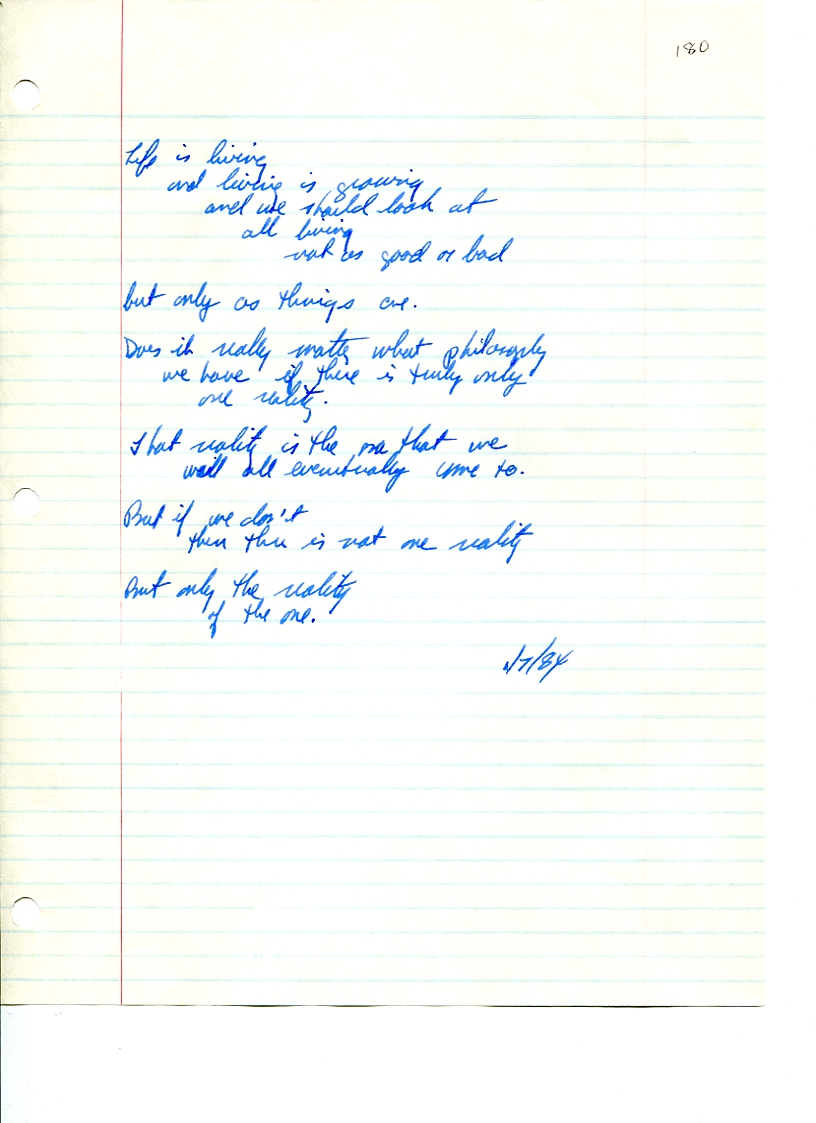 180
Life is living
and living is growing
and we should look at
all living
not as good or bad
but only as things are.
Does it really matter what philosophy
we have if there is truly only
one reality.
That reality is the one that we
will all eventually come to.
But if we don't
then there is not one reality
But only the reality
of the one.
1/7/84